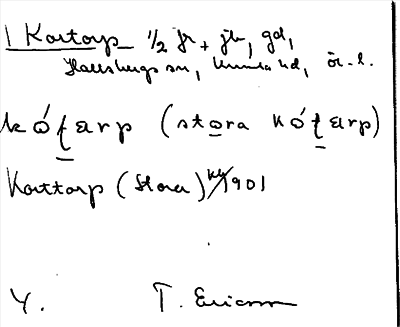 1 Kortorp 1/2 fr + jb, gd,
Hallsbergs sn, Kumla hd, ör. l.
kóʈarp (stora kóʈarp)
Korttorp (Stora) 1901
Y. T. Ericsson